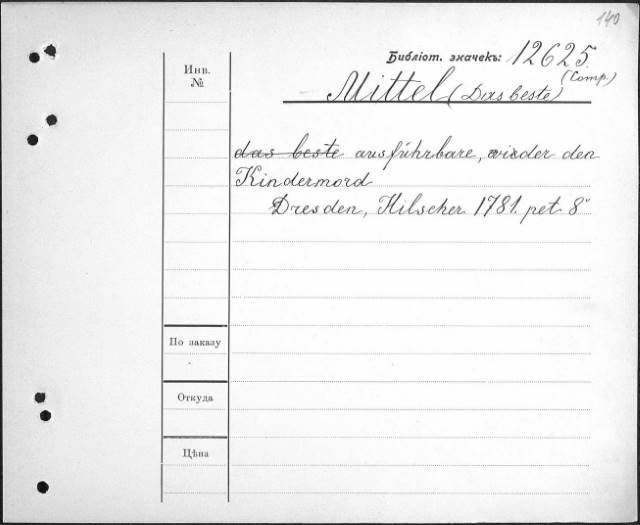 140
Библіот. значекъ: 12625.
(Comp.)
Инв.
№
Mittel (Das beste)
das beste ausführbare, wieder den
Kindermord
Dresden, Hilscher 1781. pet 8°
По заказу
Откуда
Цѣна